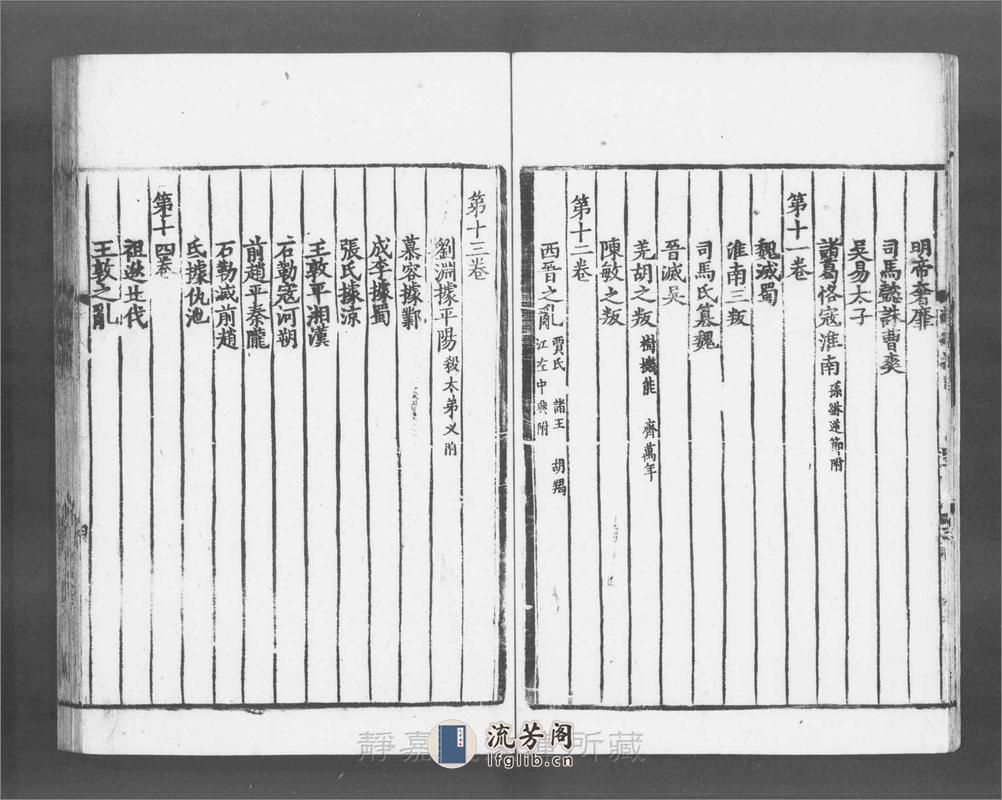 明帝奢靡
司馬懿誅曹爽
吳易太子
諸葛恪寇淮南 孫綝逆節附
第十一卷
魏滅蜀
淮南三叛
司馬氏篡魏
晉滅吳
羌胡之叛 樹機能 齊萬年
陳敏之叛
第十二卷
西晉之亂 賈氏 諸王 胡羯 江左中興附
第十三卷
劉淵據平陽 殺太弟乂附
慕容據鄴
成李據蜀
張氏據涼
王敦平湘漢
石勒寇河朔
前趙平秦隴
石勒滅前趙
氐據仇池
第十四卷
祖逖北伐
王敦之亂
靜嘉 所藏
流芳阁
lfglib.cn